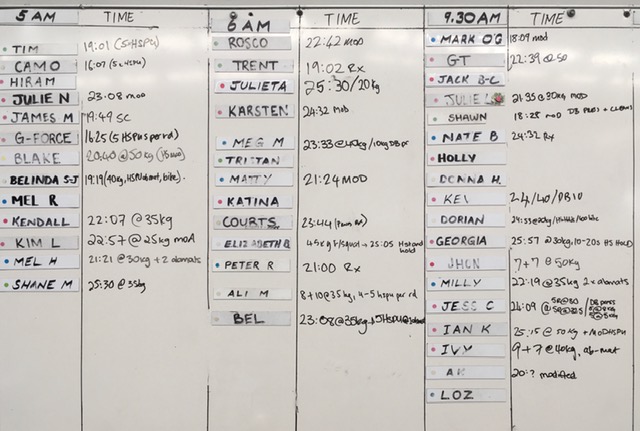 5 AM TIME
TIM 19:01 (5-HSPU)
CAMO 16:07
HIRAM
JULIE N 23:08 mod
JAMES M 19:49 SC
G-FORCE 16:25 (5 HSPUs per rd)
BLAKE 20:40 @50kg
BELINDA S-J 19:19 (40kg, HSPU/abmat, bike)
MEL R
KENDALL 22:07 @35kg
KIM L 22:57 @25kg mod
MEL H 21:21 @30kg + 2 abmats
SHANE M 25:30 @35kg
6 AM TIME
ROSCO 22:42 MOD
TRENT 19:02 Rx
JULIETA 25:30/20kg
KARSTEN 24:32 MOD
MEG M 23:33 @40kg/10kg DB
TRISTAN
MATTY 21:24 MOD
KATINA
COURTS 23:44
ELIZABETH B 25:05 HS hold
PETER R 21:00 Rx
ALI M 8+10 @35kg, 4-5 hspu per rd
BEL 23:08 @35kg
9.30AM TIME
MARK O'G 18:09 mod
GT 22:39
JACK B-L
JULIE 21:35 @30kg MOD
SHAWN 18:28 mod DB
NATE B 24:32 Rx
HOLLY
DONNA H.
KEV 24/40/DB10
DORIAN
GEORGIA 25:57 @30kg, 10-20s HS HOLD
JHON 7+7 @50kg
MILLY 22:19 @35kg 2x abmats
JESS C 24:09
IAN K 25:15 @50kg + MOD HSPU
IVY 9+7 @40kg, ab-mat
20:? modified
LOZ